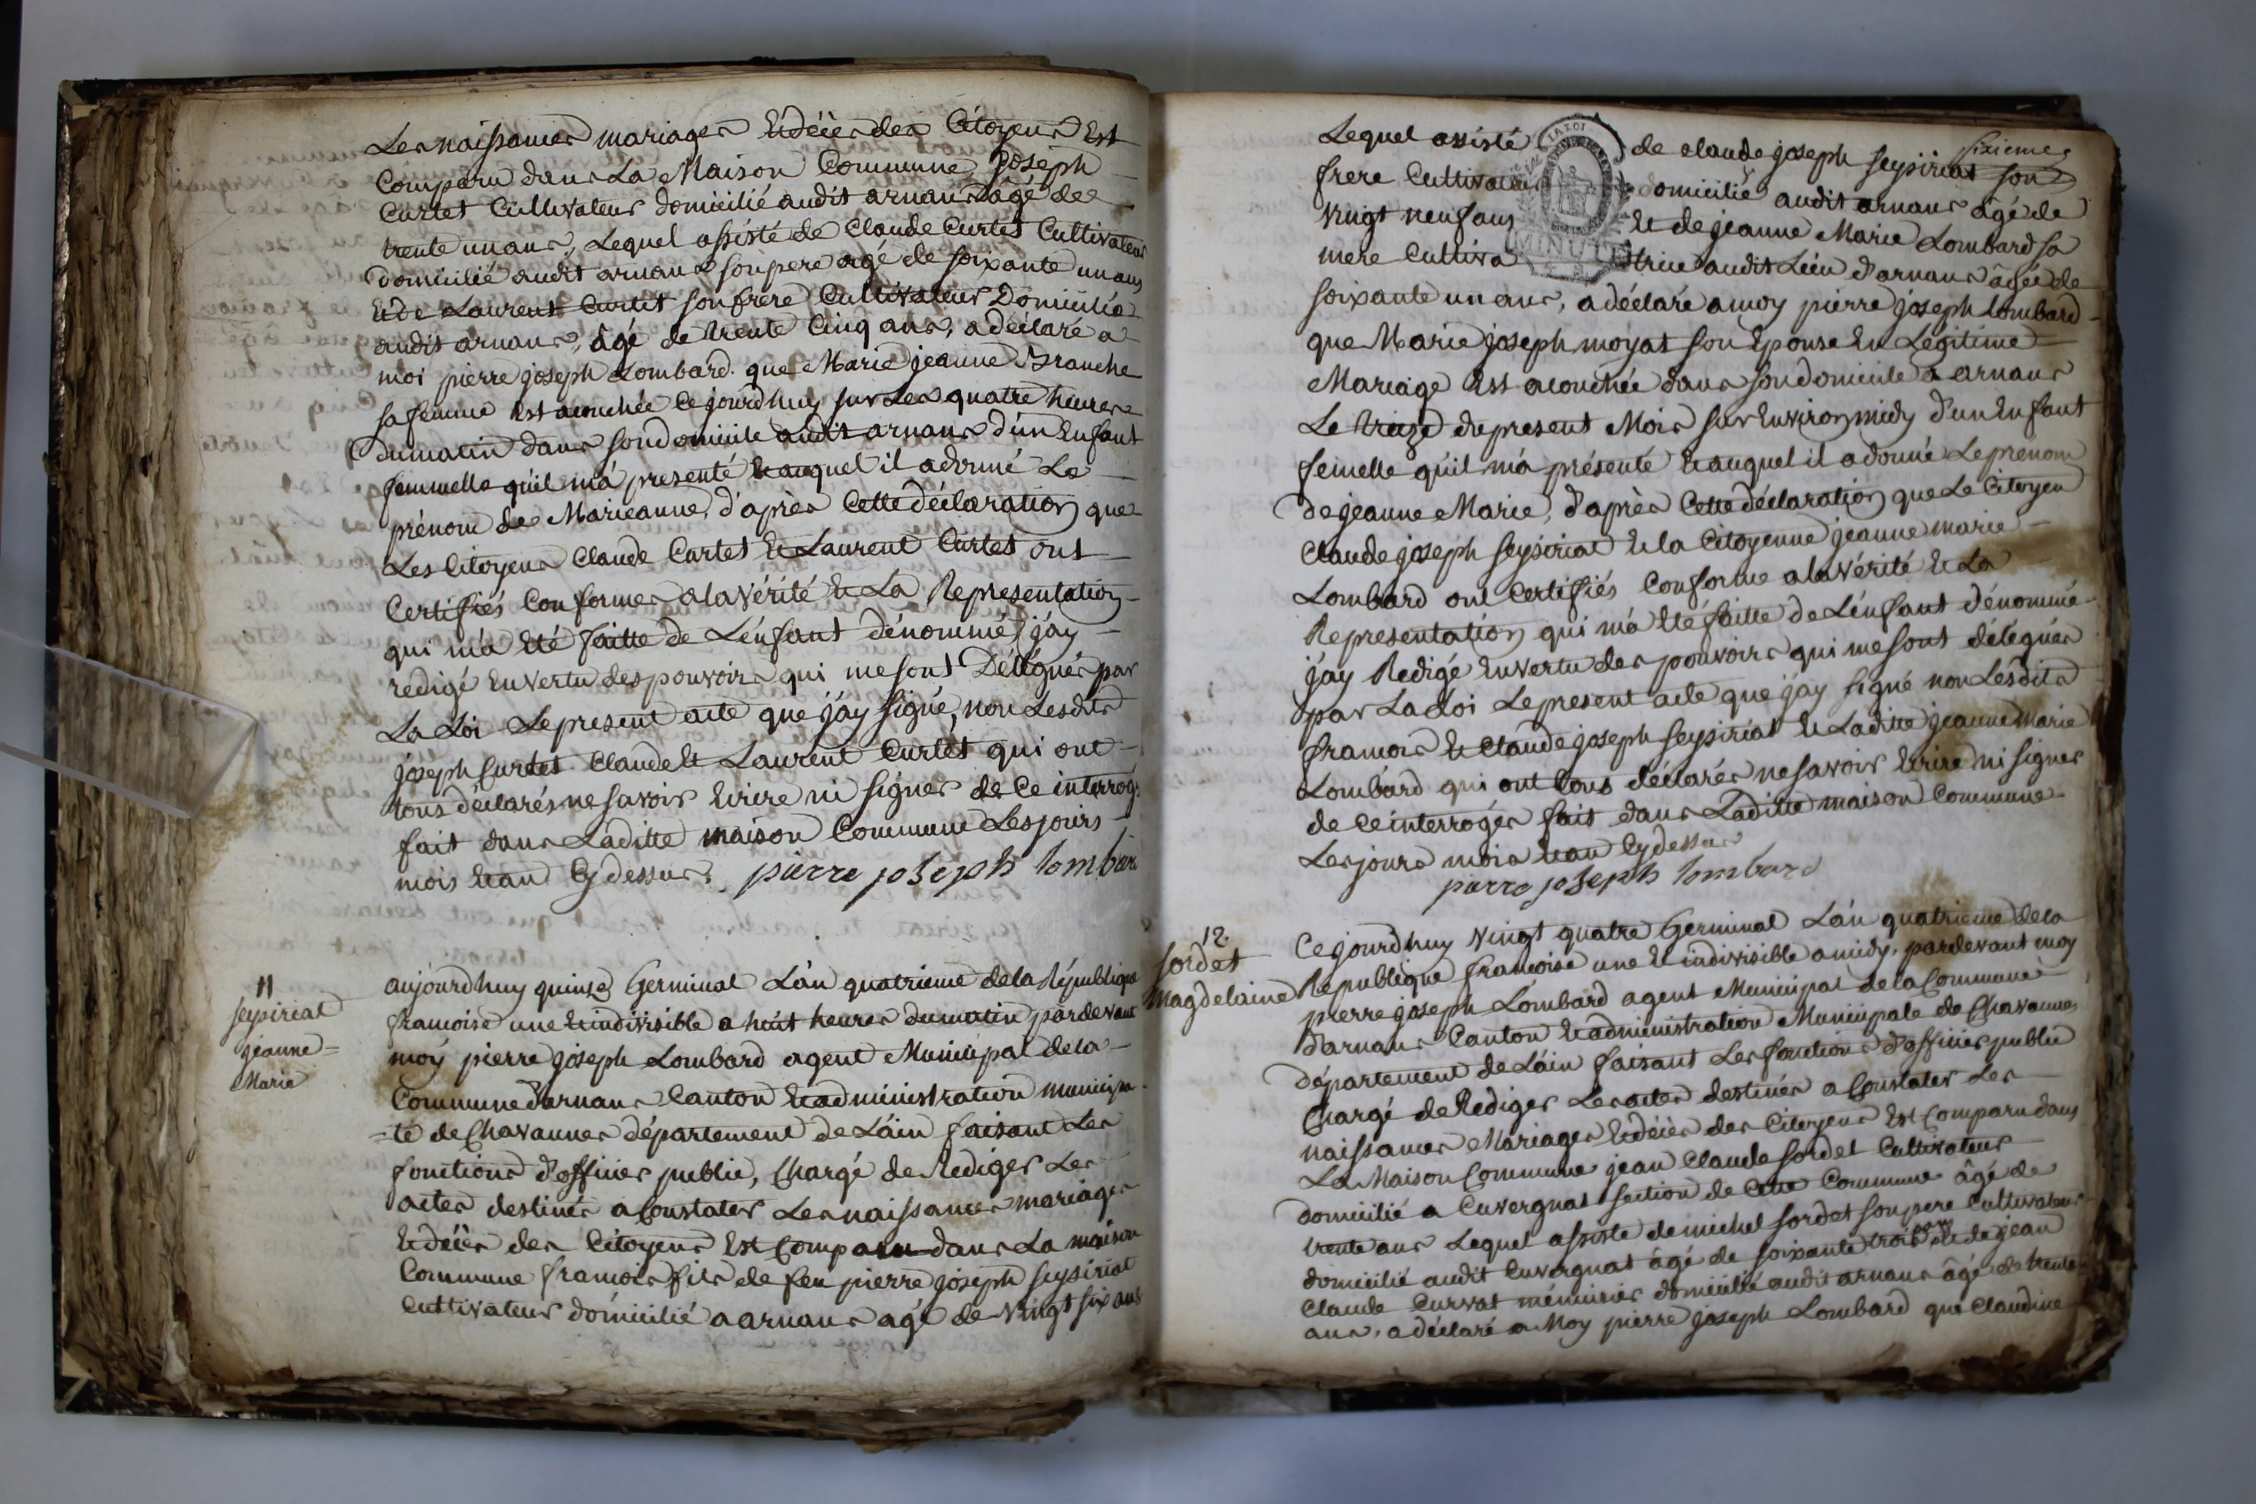 Les naissances mariages et décès des Citoyens Est
Comparu dans La Maison Commune Joseph
Curtet Cultivateur domicilié audit arnans âgé de
trente un ans, Lequel assisté de Claude Curtet Cultivateur
domicilié audit arnans son pere agé de soixante un ans
et de Laurent Curtet son frere Cultivateur Domicilié
audit arnans, âgé de trente Cinq ans, a déclaré a
moi pierre joseph Lombard que Marie jeanne Branche
sa femme Est acouchée Cejourdhuy sur Les quatre heures
Du matin dans son domicile audit arnans d'un Enfant
femmelle quil má presenté et auquel il a donné Le
prénom de Marieanne, d'après Cette déclaration que
Les Citoyens Claude Curtet et Laurent Curtet ont
Certifiés Conformes a la Vérité et La Representation
qui má été faitte de L'énfant dénommé, j'áy
redigé En vertu des pouvoirs qui me sont Délégués par
La Loi Le present acte que j'áy signé, non Lesdits
joseph Curtet Claude et Laurent Curtet qui ont
tous déclarés ne savoir Ecrire ni signer de Ce interrogés
fait dans Laditte maison Commune Les jours
mois et an Cy dessus. pierre joseph lombard
11
seysiriat
jeanne =
Marie
aujourdhuy quinze Germinal L'án quatrieme de la République
francoise une et indivisible a huit heures du matin pardevant
moy pierre joseph Lombard agent Municipal de la
Commune d'arnans Canton et administration municipa
=te de Chavannes département de L'áin faisant Les
fonctions d'officier public, Chargé de Rediger Les
actes destinés a Constater Les naissances mariages
et décès des Citoyens Est Comparu dans La maison
Commune francois fils de feu pierre joseph seysiriat
Cultivateur domicilié a arnans agé de Vingt six ans
sixieme
Lequel assisté de claude joseph seysiriat son
frere Cultivateur domicilié audit arnans âgé de
Vingt neuf ans et de jeanne Marie Lombard sa
MINUTE
mere Cultiva trice audit Lieu d'arnans âgée de
soixante un ans, a déclaré a moy pierre joseph Lombard
que Marie joseph moyat son Epouse En Légitime
Mariage Est acouchée dans son domicile a arnans
Le treize du present Mois sur Environ midy d'un Enfant
feméllé quil má présenté et auquel il a donné Le prénom
de jeanne Marie, d'après Cette déclaration que Le Citoyen
Claude joseph seysiriat et la Citoyenne jeanne marie
Lombard ont Certifiés Conforme a la Vérité et La
Representation qui má été faitte de L'énfant dénommé
j'áy Redigé En vertu des pouvoirs qui me sont délégués
par La Loi Le present acte que j'áy signé non Lesdits
francois et Claude joseph seysiriat et Laditte jeanne Marie
Lombard qui ont tous déclarés ne savoir Ecrire ni signer
de Ce interrogés fait dans Laditte maison Commune
Les jours mois et an Cy dessus
pierre joseph lombard
12
sordet
Magdelaine
Cejourdhuy Vingt quatre Germinal L'án quatrieme de la
Republique francoise une et indivisible a midy, pardevant moy
pierre joseph Lombard agent Municipal de la Commune
d'arnans Canton et administration Municipale de Chavannes
département de L'áin faisant Les fonctions d'officier public
Chargé de Rediger Les actes destinés a Constater Les
naissances Mariages et décès des Citoyens Est Comparu dans
La Maison Commune jean Claude sordet Cultivateur
domicilié a Cuvergnat section de Cette Commune âgé de
trente ans Lequel assisté de michel sordet son pere Cultivateur
domicilié audit Cuvergnat âgé de soixante trois ans et de jean
Claude Curvat menuisier domicilié audit arnans âgé de trente
ans, a déclaré a Moy pierre joseph Lombard que Claudine